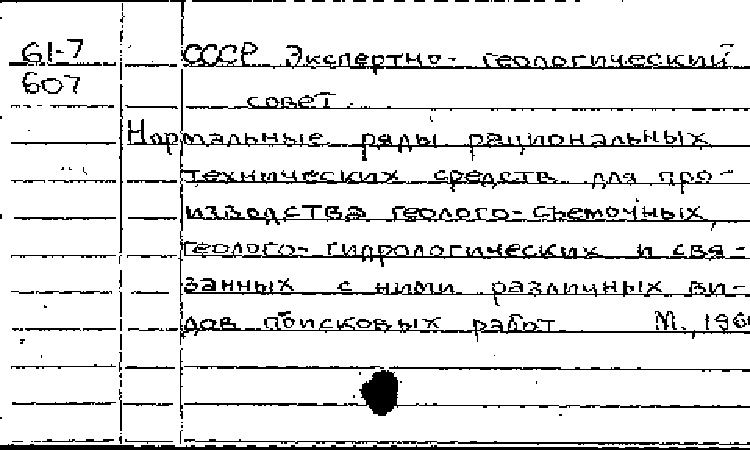 61-7
607
СССР Экспертно-геологический
совет
Нормальные ряды рациональных
технических средств для про-
изводства геолого-съемочных,
геолого-гидрологических и свя-
занных с ними различных ви-
дов поисковых работ М., 196